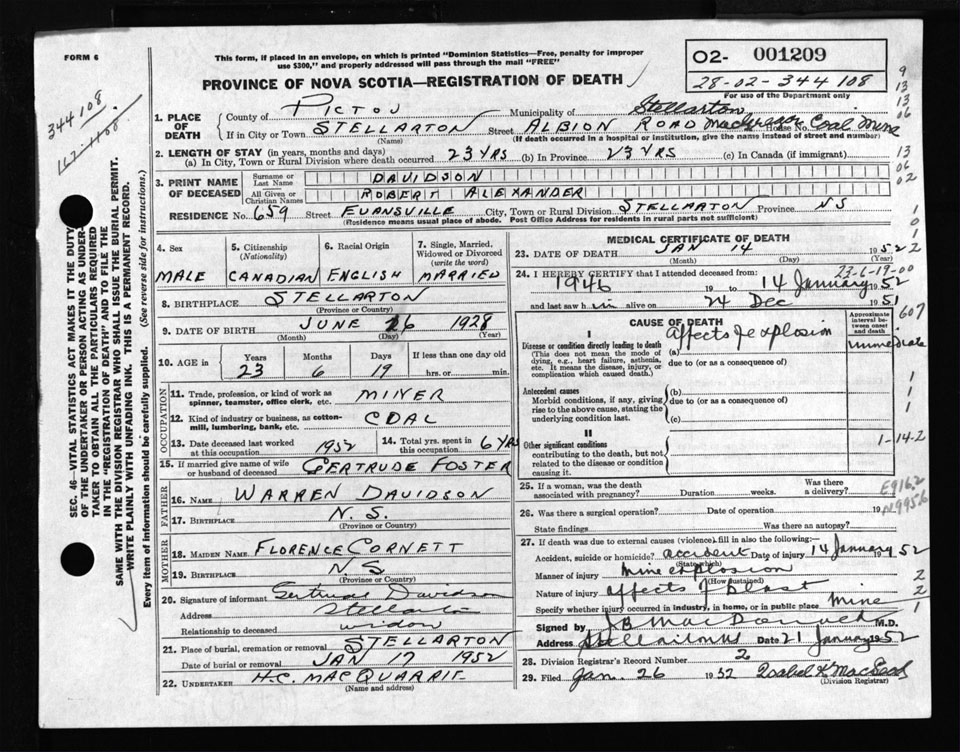 FORM 6
This form, if placed in an envelope, on which is printed "Dominion Statistics—Free, penalty for improper
use $300," and properly addressed will pass through the mail "FREE"
PROVINCE OF NOVA SCOTIA—REGISTRATION OF DEATH
O2- 001209
28-02-344108
For use of the Department only
344108
SEC. 46—VITAL STATISTICS ACT MAKES IT THE DUTY
OF THE UNDERTAKER OR PERSON ACTING AS UNDER-
TAKER TO OBTAIN ALL THE PARTICULARS REQUIRED
IN THE "REGISTRATION OF DEATH" AND TO FILE THE
SAME WITH THE DIVISION REGISTRAR WHO SHALL ISSUE THE BURIAL PERMIT.
WRITE PLAINLY WITH UNFADING INK. THIS IS A PERMANENT RECORD.
Every item of information should be carefully supplied. (See reverse side for instructions.)
1. PLACE OF DEATH
County of PICTOU Municipality of Stellarton
If in City or Town STELLARTON Street ALBION ROAD MacGregor House No. Coal Mine
(Name) (If death occurred in a hospital or institution, give the name instead of street and number)
2. LENGTH OF STAY (in years, months and days)
(a) In City, Town or Rural Division where death occurred 23 YRS (b) In Province 23 YRS (c) In Canada (if immigrant)
3. PRINT NAME OF DECEASED
Surname or Last Name DAVIDSON
All Given or Christian Names ROBERT ALEXANDER
RESIDENCE No. 659 Street EVANSVILLE City, Town or Rural Division STELLARTON Province NS
(Residence means usual place of abode. Post Office Address for residents in rural parts not sufficient)
4. Sex MALE
5. Citizenship (Nationality) CANADIAN
6. Racial Origin ENGLISH
7. Single, Married, Widowed or Divorced (write the word) MARRIED
8. BIRTHPLACE STELLARTON
(Province or Country)
9. DATE OF BIRTH JUNE 26 1928
(Month) (Day) (Year)
10. AGE in Years 23 Months 6 Days 19 If less than one day old hrs. or min.
OCCUPATION
11. Trade, profession, or kind of work as spinner, teamster, office clerk, etc. MINER
12. Kind of industry or business, as cotton-mill, lumbering, bank, etc. COAL
13. Date deceased last worked at this occupation 1952
14. Total yrs. spent in this occupation 6 YRS
15. If married give name of wife or husband of deceased GERTRUDE FOSTER
FATHER
16. NAME WARREN DAVIDSON
17. BIRTHPLACE N.S.
(Province or Country)
MOTHER
18. MAIDEN NAME FLORENCE CORNETT
19. BIRTHPLACE N.S
(Province or Country)
20. Signature of informant Gertrude Davidson
Address Stellarton
Relationship to deceased widow
21. Place of burial, cremation or removal STELLARTON
Date of burial or removal JAN 17 1952
22. UNDERTAKER H.C. MACQUARRIE
(Name and address)
MEDICAL CERTIFICATE OF DEATH
23. DATE OF DEATH JAN 14 1952
(Month) (Day) (Year)
23-6-19-00
24. I HEREBY CERTIFY that I attended deceased from:
1946 19 to 14 January 1952
and last saw h im alive on 24 Dec 1951
CAUSE OF DEATH
Approximate interval between onset and death
607
I
Disease or condition directly leading to death
(This does not mean the mode of dying, e.g., heart failure, asthenia, etc. It means the disease, injury, or complication which caused death.)
(a) affects of explosion immediate
due to (or as a consequence of)
Antecedent causes
Morbid conditions, if any, giving rise to the above cause, stating the underlying condition last.
(b)
due to (or as a consequence of)
(c)
II
Other significant conditions
contributing to the death, but not related to the disease or condition causing it.
1-14-2
25. If a woman, was the death associated with pregnancy? Duration weeks. Was there a delivery?
E916.2
26. Was there a surgical operation? Date of operation 19
N995.6
State findings Was there an autopsy?
27. If death was due to external causes (violence) fill in also the following:
Accident, suicide or homicide? accident Date of injury 14 January 52
(State which)
Manner of injury mine explosion
(How sustained)
Nature of injury affects of blast
Specify whether injury occurred in industry, in home, or in public place mine
Signed by J B MacDonald M.D.
Address Date 21 January 1952
28. Division Registrar's Record Number 2
29. Filed Jan. 26 1952 Isabel K MacLeod
(Division Registrar)
9
13
13
16
13
06
02
1
0
1
2
1
1
1
2
2
1